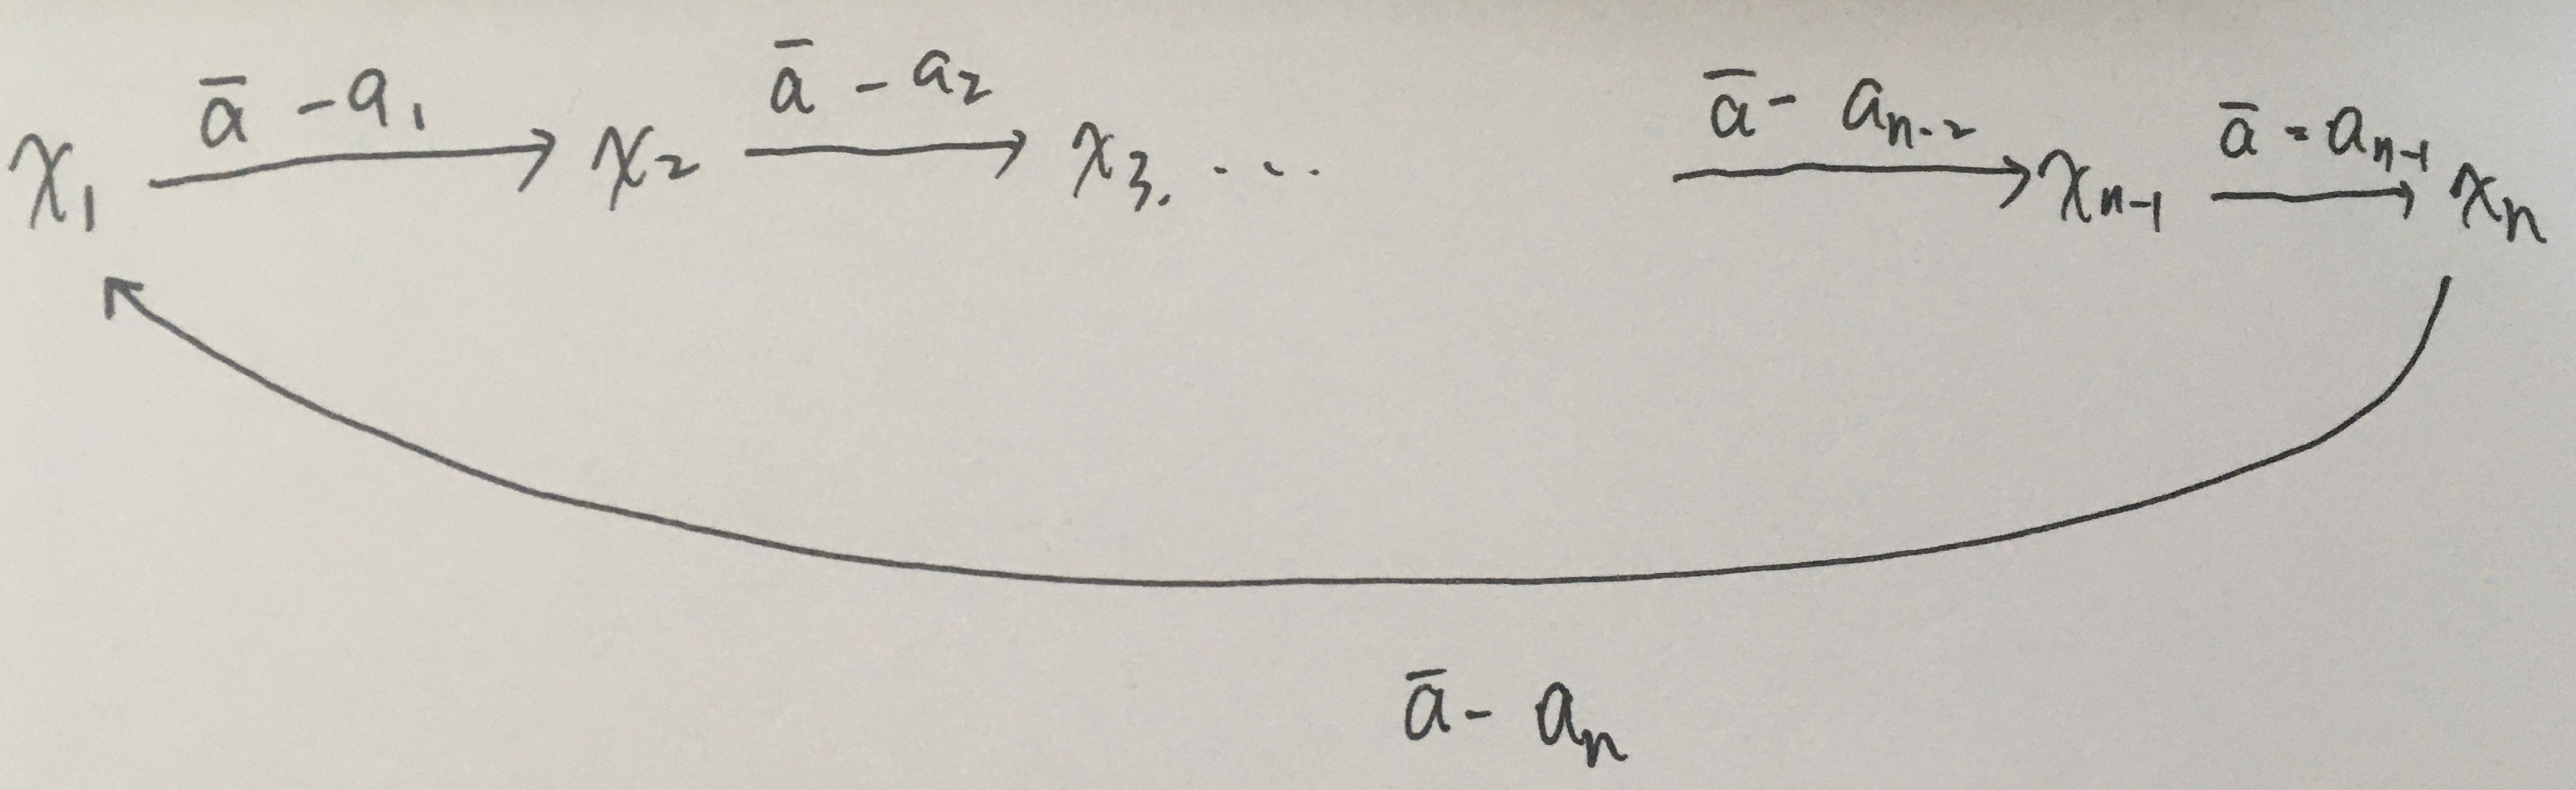 x₁ →(ā - a₁) x₂ →(ā - a₂) x₃. ... →(ā - aₙ₋₂) xₙ₋₁ →(ā - aₙ₋₁) xₙ
ā - aₙ